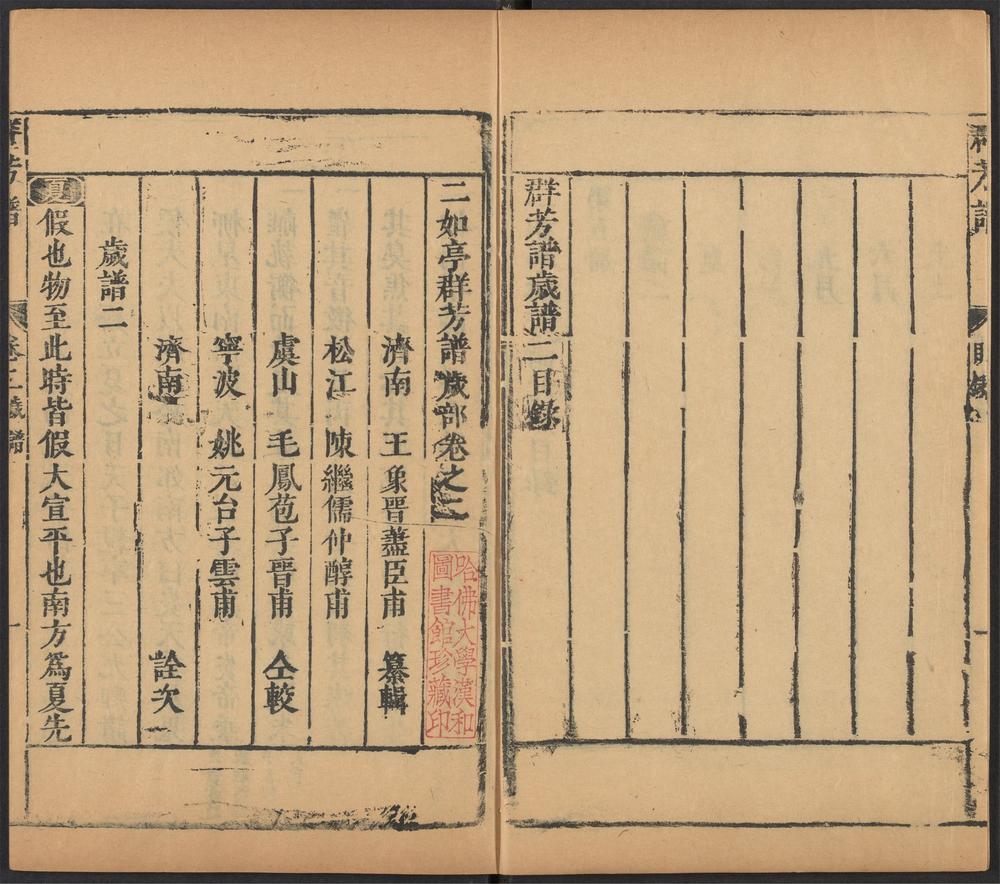 群芳譜
目錄
一
群芳譜歲譜二目錄
二如亭群芳譜歲部卷之二
濟南 王象晉藎臣甫 纂輯
松江 陳繼儒仲醇甫
虞山 毛鳳苞子晉甫 仝較
寧波 姚元台子雲甫
濟南 詮次
歲譜二
夏 假也物至此時皆假大宣平也南方爲夏先
群芳譜
卷二歲譜
一
哈佛大學漢和
圖書館珍藏印